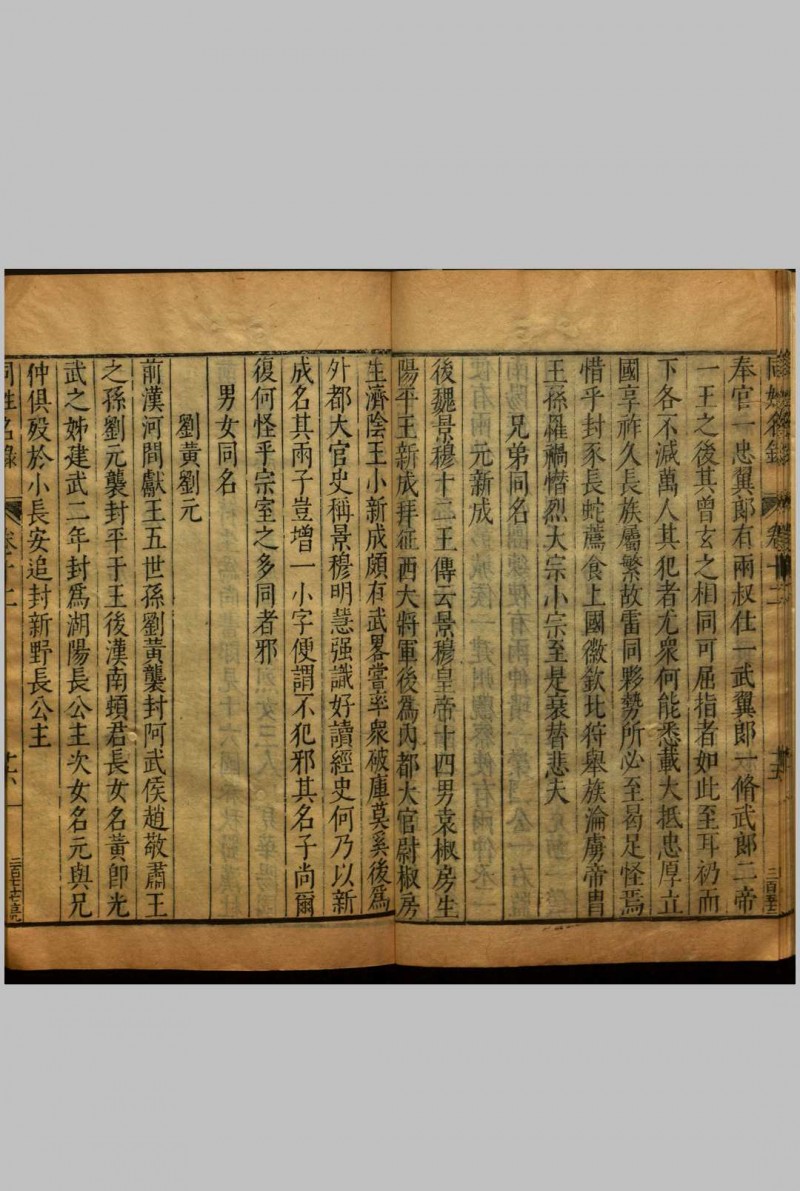 同姓名錄 卷十二
奉官一忠翼郎有兩叔仕一武翼郎一脩武郎二帝
一王之後其曾玄之相同可屈指者如此至耳礽而
下各不減萬人其犯者尤衆何能悉載大抵忠厚立
國享祚久長族屬繁故雷同夥勢所必至曷足怪焉
惜乎封豕長蛇薦食上國徽欽北狩舉族淪虜帝胄
王孫罹禍憯烈大宗小宗至是衰替悲夫
兄弟同名
元新成
後魏景穆十二王傳云景穆皇帝十四男袁椒房生
陽平王新成拜征西大將軍後爲內都大官尉椒房
生濟陰王小新成頗有武畧嘗率衆破庫莫奚後爲
外都大官史稱景穆明慧强識好讀經史何乃以新
成名其兩子豈增一小字便謂不犯邪其名子尚爾
復何怪乎宗室之多同者邪
男女同名
劉黃劉元
前漢河間獻王五世孫劉黃襲封阿武侯趙敬肅王
之孫劉元襲封平于王後漢南頓君長女名黃卽光
武之姊建武二年封爲湖陽長公主次女名元與兄
仲俱歿於小長安追封新野長公主
同姓名錄 卷十二